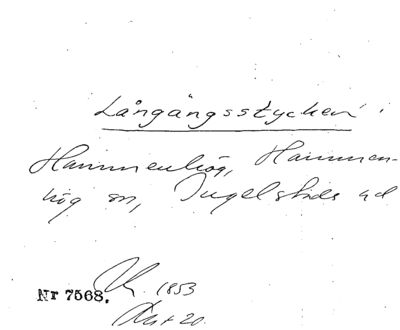 Långängsstycken
Hammenhög, Hammen-
hög sn, Ingelstads hd
Nr 7568. 1853